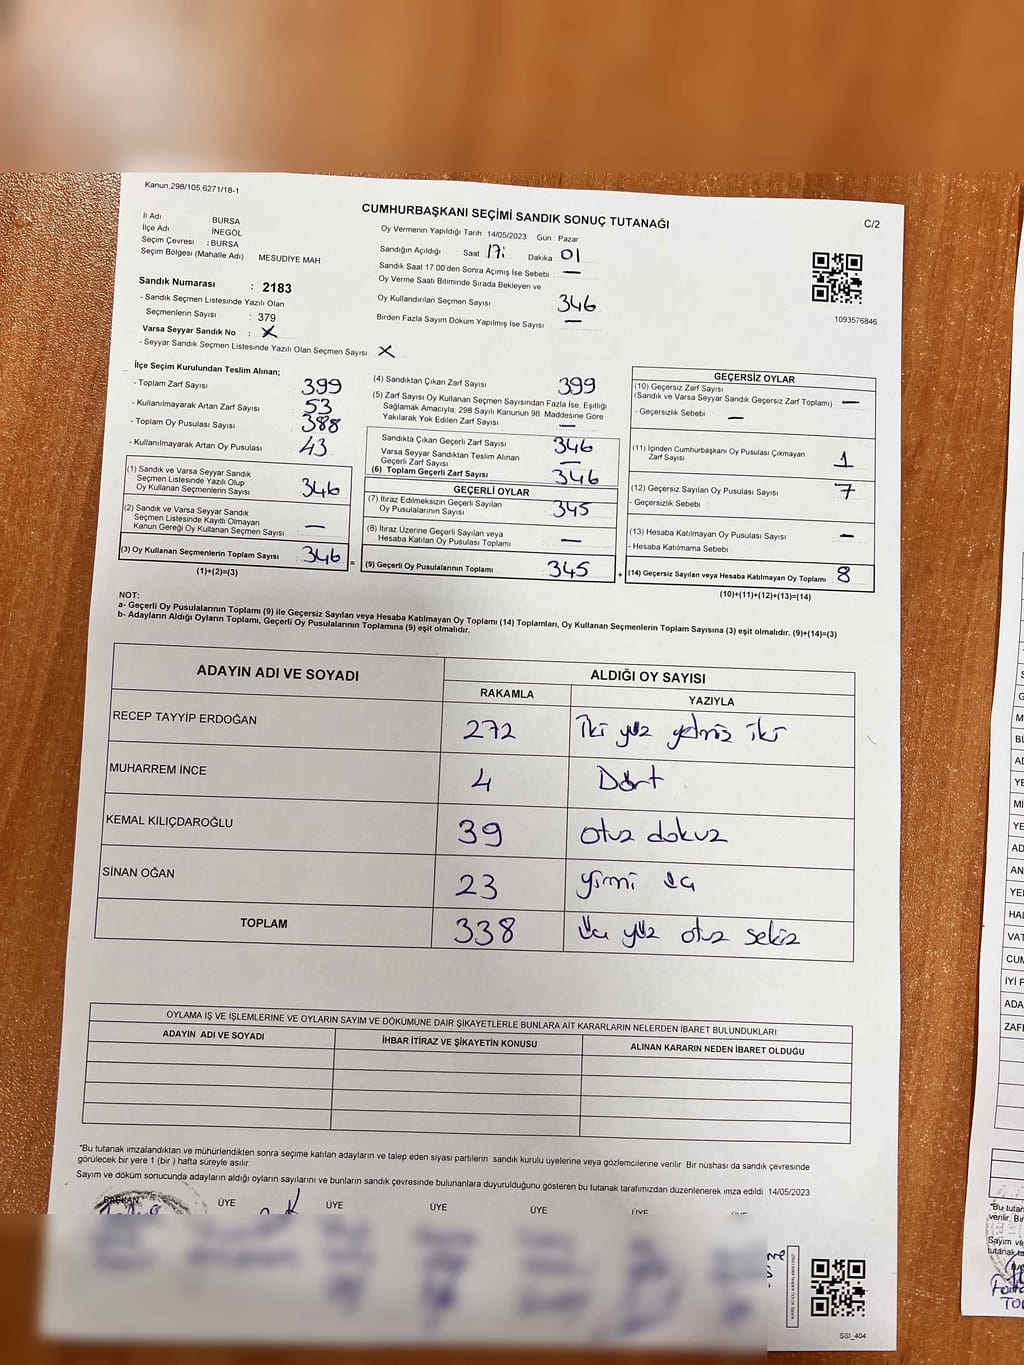 Kanun,298/105,6271/18-1
CUMHURBAŞKANI SEÇİMİ SANDIK SONUÇ TUTANAĞI
C/2
İl Adı BURSA
İlçe Adı İNEGÖL
Seçim Çevresi : BURSA
Seçim Bölgesi (Mahalle Adı) MESUDİYE MAH
Oy Vermenin Yapıldığı Tarih : 14/05/2023 Gün Pazar
Sandığın Açıldığı Saat 17: Dakika 01
Sandık Saat 17:00'den Sonra Açımış İse Sebebi —
Oy Verme Saati Bitiminde Sırada Bekleyen ve
Oy Kullandırılan Seçmen Sayısı 346
Birden Fazla Sayım Döküm Yapılmış İse Sayısı —
1093576846
Sandık Numarası : 2183
- Sandık Seçmen Listesinde Yazılı Olan
Seçmenlerin Sayısı : 379
Varsa Seyyar Sandık No : X
- Seyyar Sandık Seçmen Listesinde Yazılı Olan Seçmen Sayısı X
İlçe Seçim Kurulundan Teslim Alınan;
- Toplam Zarf Sayısı 399
- Kullanılmayarak Artan Zarf Sayısı 53
- Toplam Oy Pusulası Sayısı 388
- Kullanılmayarak Artan Oy Pusulası 43
(1) Sandık ve Varsa Seyyar Sandık
Seçmen Listesinde Yazılı Olup
Oy Kullanan Seçmenlerin Sayısı 346
(2) Sandık ve Varsa Seyyar Sandık
Seçmen Listesinde Kayıtlı Olmayan
Kanun Gereği Oy Kullanan Seçmen Sayısı —
(3) Oy Kullanan Seçmenlerin Toplam Sayısı 346
(1)+(2)=(3)
(4) Sandıktan Çıkan Zarf Sayısı 399
(5) Zarf Sayısı Oy Kullanan Seçmen Sayısından Fazla İse, Eşitliği
Sağlamak Amacıyla; 298 Sayılı Kanunun 98. Maddesine Göre
Yakılarak Yok Edilen Zarf Sayısı —
Sandıkta Çıkan Geçerli Zarf Sayısı 346
Varsa Seyyar Sandıktan Teslim Alınan
Geçerli Zarf Sayısı —
(6) Toplam Geçerli Zarf Sayısı 346
GEÇERLİ OYLAR
(7) İtiraz Edilmeksizin Geçerli Sayılan
Oy Pusulalarının Sayısı 345
(8) İtiraz Üzerine Geçerli Sayılan veya
Hesaba Katılan Oy Pusulası Toplamı —
= (9) Geçerli Oy Pusulalarının Toplamı 345
GEÇERSİZ OYLAR
(10) Geçersiz Zarf Sayısı
(Sandık ve Varsa Seyyar Sandık Geçersiz Zarf Toplamı) —
- Geçersizlik Sebebi —
(11) İçinden Cumhurbaşkanı Oy Pusulası Çıkmayan
Zarf Sayısı 1
(12) Geçersiz Sayılan Oy Pusulası Sayısı 7
- Geçersizlik Sebebi
(13) Hesaba Katılmayan Oy Pusulası Sayısı —
- Hesaba Katılmama Sebebi
+ (14) Geçersiz Sayılan veya Hesaba Katılmayan Oy Toplamı 8
(10)+(11)+(12)+(13)=(14)
NOT:
a- Geçerli Oy Pusulalarının Toplamı (9) ile Geçersiz Sayılan veya Hesaba Katılmayan Oy Toplamı (14) Toplamları, Oy Kullanan Seçmenlerin Toplam Sayısına (3) eşit olmalıdır. (9)+(14)=(3)
b- Adayların Aldığı Oyların Toplamı, Geçerli Oy Pusulalarının Toplamına (9) eşit olmalıdır.
ADAYIN ADI VE SOYADI
ALDIĞI OY SAYISI
RAKAMLA YAZIYLA
RECEP TAYYİP ERDOĞAN 272 İki yüz yetmiş iki
MUHARREM İNCE 4 Dört
KEMAL KILIÇDAROĞLU 39 otuz dokuz
SİNAN OĞAN 23 yirmi üç
TOPLAM 338 Üç yüz otuz sekiz
OYLAMA İŞ VE İŞLEMLERİNE VE OYLARIN SAYIM VE DÖKÜMÜNE DAİR ŞİKAYETLERLE BUNLARA AİT KARARLARIN NELERDEN İBARET BULUNDUKLARI
ADAYIN ADI VE SOYADI İHBAR İTİRAZ VE ŞİKAYETİN KONUSU ALINAN KARARIN NEDEN İBARET OLDUĞU
*Bu tutanak imzalandıktan ve mühürlendikten sonra seçime katılan adayların ve talep eden siyasi partilerin sandık kurulu üyelerine veya gözlemcilerine verilir. Bir nüshası da sandık çevresinde
görülecek bir yere 1 (bir ) hafta süreyle asılır.
Sayım ve döküm sonucunda adayların aldığı oyların sayılarını ve bunların sandık çevresinde bulunanlara duyurulduğunu gösteren bu tutanak tarafımızdan düzenlenerek imza edildi. 14/05/2023
BAŞKAN ÜYE ÜYE ÜYE ÜYE ÜYE
SSI_404